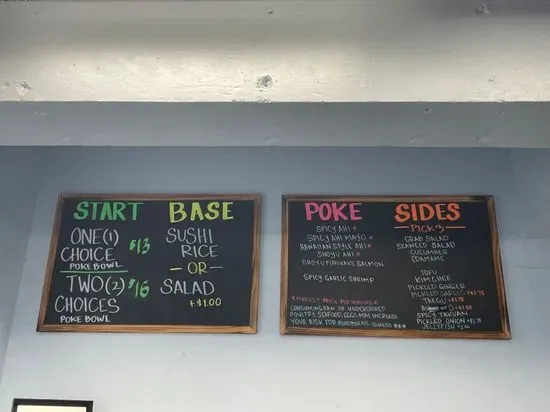 START BASE
ONE(1)
CHOICE
POKE BOWL
$13
TWO(2)
CHOICES
POKE BOWL
$16
SUSHI
RICE
- OR -
SALAD
+$1.00
POKE
SPICY AHI *
SPICY AHI MAYO *
HAWAIIAN STYLE AHI *
SHOYU AHI *
SHOYU FURIKAKE SALMON
SPICY GARLIC SHRIMP
*MARKET PRICE PER SERVING*
CONSUMING RAW OR UNDERCOOKED
POULTRY, SEAFOOD, EGGS, MAY INCREASE
YOUR RISK FOR FOODBORNE ILLNESS ***
SIDES
- PICK 3 -
CRAB SALAD
SEAWEED SALAD
CUCUMBER
EDAMAME
TOFU
KIM CHEE
PICKLED GINGER
PICKLED GARLIC +$1.75
TAEGU +$1.75
SPICY TAKUAN
PICKLED ONION +$1.75
JELLYFISH